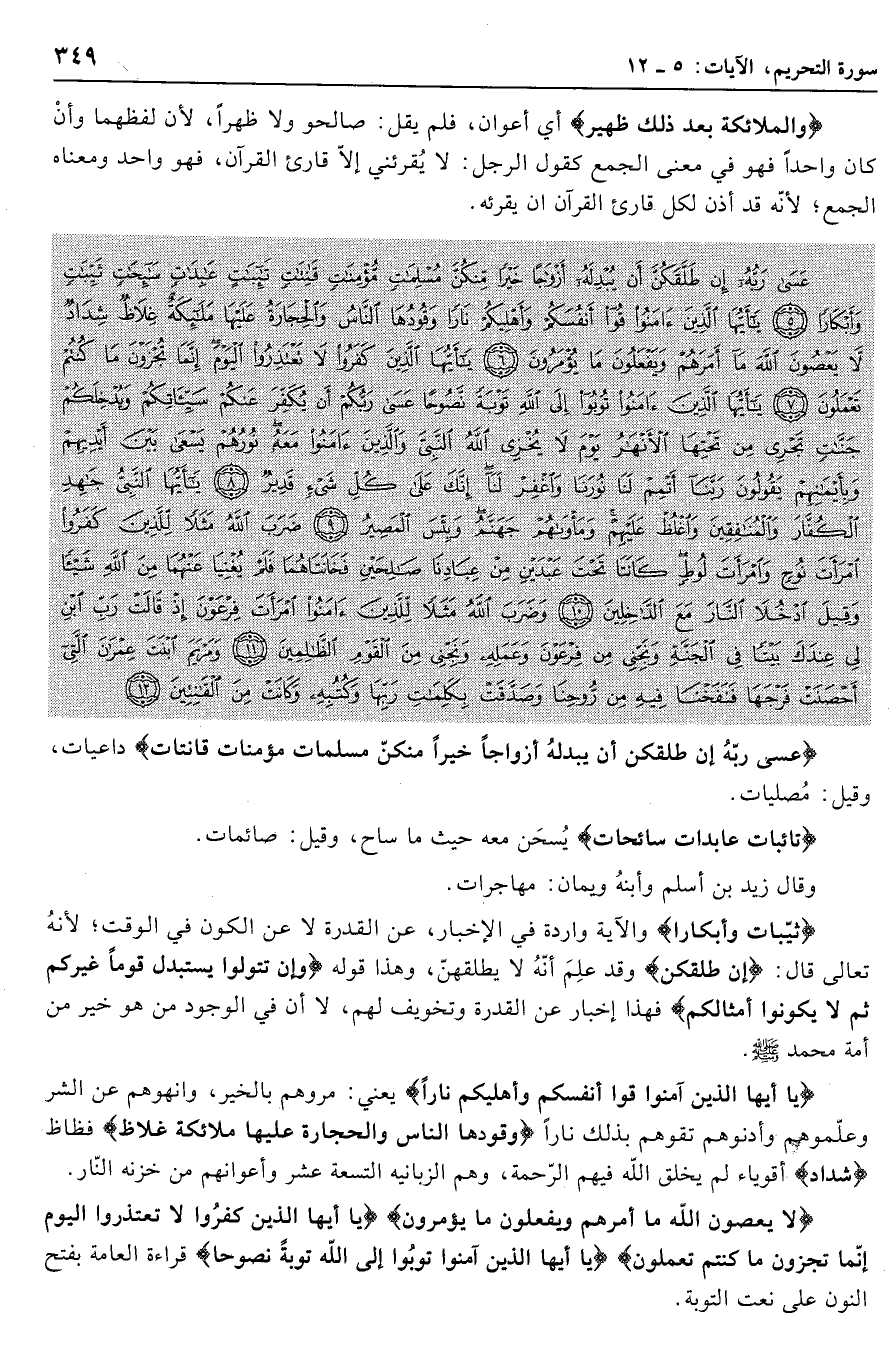 سورة التحريم، الآيات: ٥ ـ ١٢
٣٤٩
﴿والملائكة بعد ذلك ظهير﴾ أي أعوان، فلم يقل: صالحو ولا ظهراً، لأن لفظهما وأنْ
كان واحداً فهو في معنى الجمع كقول الرجل: لا يُقرئني إلاّ قارئ القرآن، فهو واحد ومعناه
الجمع؛ لأنّه قد أذن لكل قارئ القرآن ان يقرئه.
عَسَىٰ رَبُّهُۥٓ إِن طَلَّقَكُنَّ أَن يُبْدِلَهُۥٓ أَزْوَٰجًا خَيْرًا مِّنكُنَّ مُسْلِمَٰتٍ مُّؤْمِنَٰتٍ قَٰنِتَٰتٍ تَٰٓئِبَٰتٍ عَٰبِدَٰتٍ سَٰٓئِحَٰتٍ ثَيِّبَٰتٍ
وَأَبْكَارًا ﴿٥﴾ يَٰٓأَيُّهَا ٱلَّذِينَ ءَامَنُوا۟ قُوٓا۟ أَنفُسَكُمْ وَأَهْلِيكُمْ نَارًا وَقُودُهَا ٱلنَّاسُ وَٱلْحِجَارَةُ عَلَيْهَا مَلَٰٓئِكَةٌ غِلَاظٌ شِدَادٌ
لَّا يَعْصُونَ ٱللَّهَ مَآ أَمَرَهُمْ وَيَفْعَلُونَ مَا يُؤْمَرُونَ ﴿٦﴾ يَٰٓأَيُّهَا ٱلَّذِينَ كَفَرُوا۟ لَا تَعْتَذِرُوا۟ ٱلْيَوْمَ ۖ إِنَّمَا تُجْزَوْنَ مَا كُنتُمْ
تَعْمَلُونَ ﴿٧﴾ يَٰٓأَيُّهَا ٱلَّذِينَ ءَامَنُوا۟ تُوبُوٓا۟ إِلَى ٱللَّهِ تَوْبَةً نَّصُوحًا عَسَىٰ رَبُّكُمْ أَن يُكَفِّرَ عَنكُمْ سَيِّـَٔاتِكُمْ وَيُدْخِلَكُمْ
جَنَّٰتٍ تَجْرِى مِن تَحْتِهَا ٱلْأَنْهَٰرُ يَوْمَ لَا يُخْزِى ٱللَّهُ ٱلنَّبِىَّ وَٱلَّذِينَ ءَامَنُوا۟ مَعَهُۥ ۖ نُورُهُمْ يَسْعَىٰ بَيْنَ أَيْدِيهِمْ
وَبِأَيْمَٰنِهِمْ يَقُولُونَ رَبَّنَآ أَتْمِمْ لَنَا نُورَنَا وَٱغْفِرْ لَنَآ ۖ إِنَّكَ عَلَىٰ كُلِّ شَىْءٍ قَدِيرٌ ﴿٨﴾ يَٰٓأَيُّهَا ٱلنَّبِىُّ جَٰهِدِ
ٱلْكُفَّارَ وَٱلْمُنَٰفِقِينَ وَٱغْلُظْ عَلَيْهِمْ ۚ وَمَأْوَىٰهُمْ جَهَنَّمُ ۖ وَبِئْسَ ٱلْمَصِيرُ ﴿٩﴾ ضَرَبَ ٱللَّهُ مَثَلًا لِّلَّذِينَ كَفَرُوا۟
ٱمْرَأَتَ نُوحٍ وَٱمْرَأَتَ لُوطٍ ۖ كَانَتَا تَحْتَ عَبْدَيْنِ مِنْ عِبَادِنَا صَٰلِحَيْنِ فَخَانَتَاهُمَا فَلَمْ يُغْنِيَا عَنْهُمَا مِنَ ٱللَّهِ شَيْـًٔا
وَقِيلَ ٱدْخُلَا ٱلنَّارَ مَعَ ٱلدَّٰخِلِينَ ﴿١٠﴾ وَضَرَبَ ٱللَّهُ مَثَلًا لِّلَّذِينَ ءَامَنُوا۟ ٱمْرَأَتَ فِرْعَوْنَ إِذْ قَالَتْ رَبِّ ٱبْنِ
لِى عِندَكَ بَيْتًا فِى ٱلْجَنَّةِ وَنَجِّنِى مِن فِرْعَوْنَ وَعَمَلِهِۦ وَنَجِّنِى مِنَ ٱلْقَوْمِ ٱلظَّٰلِمِينَ ﴿١١﴾ وَمَرْيَمَ ٱبْنَتَ عِمْرَٰنَ ٱلَّتِىٓ
أَحْصَنَتْ فَرْجَهَا فَنَفَخْنَا فِيهِ مِن رُّوحِنَا وَصَدَّقَتْ بِكَلِمَٰتِ رَبِّهَا وَكُتُبِهِۦ وَكَانَتْ مِنَ ٱلْقَٰنِتِينَ ﴿١٢﴾
﴿عسى ربّهُ إن طلقكن أن يبدلهُ أزواجاً خيراً منكنّ مسلمات مؤمنات قانتات﴾ داعيات،
وقيل: مُصليات.
﴿تائبات عابدات سائحات﴾ يُسحَن معه حيث ما ساح، وقيل: صائمات.
وقال زيد بن أسلم وأبنهُ ويمان: مهاجرات.
﴿ثيّبات وأبكارا﴾ والآية واردة في الإخبار، عن القدرة لا عن الكون في الوقت؛ لأنهُ
تعالى قال: ﴿إن طلقكن﴾ وقد علِمَ أنّهُ لا يطلقهنّ، وهذا قوله ﴿وإن تتولوا يستبدل قوماً غيركم
ثم لا يكونوا أمثالكم﴾ فهذا إخبار عن القدرة وتخويف لهم، لا أن في الوجود من هو خير من
أمة محمد ﷺ.
﴿يا أيها الذين آمنوا قوا أنفسكم وأهليكم ناراً﴾ يعني: مروهم بالخير، وانهوهم عن الشر
وعلّموهم وأدنوهم تقوهم بذلك ناراً ﴿وقودها الناس والحجارة عليها ملائكة غلاظ﴾ فظاظ
﴿شداد﴾ أقوياء لم يخلق اللّه فيهم الرّحمة، وهم الزبانيه التسعة عشر وأعوانهم من خزنه النّار.
﴿لا يعصون اللّه ما أمرهم ويفعلون ما يؤمرون﴾ ﴿يا أيها الذين كفرُوا لا تعتذروا اليوم
إنّما تجزون ما كنتم تعملون﴾ ﴿يا أيها الذين آمنوا توبُوا إلى اللّه توبةً نصوحا﴾ قراءة العامة بفتح
النون على نعت التوبة.